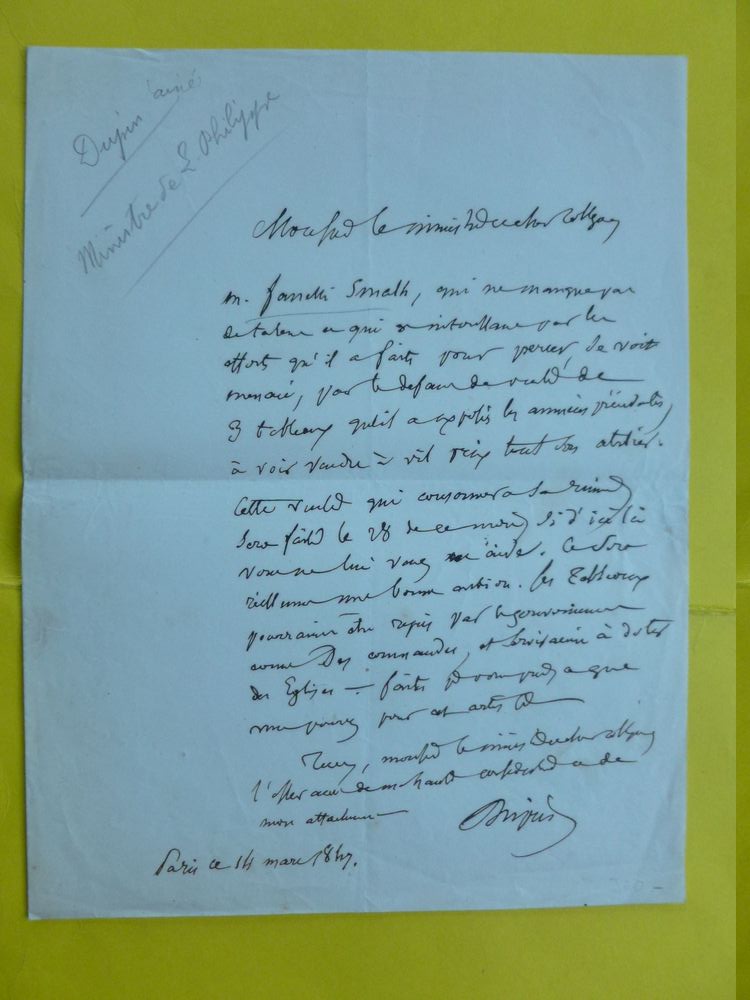 Dupin ainé
Ministre de L. Philippe
Monsieur le ministre et cher collègue
m. Fanelli Smalh, qui ne manque pas
de talent et qui par les
efforts qu'il a faits pour percer, se voit
menacé, par le défaut de vente de
3 tableaux qu'il a exposés les années précédentes,
à voir vendre à vil prix tout son atelier.
Cette vente qui consommera sa ruine
sera faite le 28 de ce mois, si d'ici là
vous ne lui venez en aide. Ce sera
réellement une bonne action. Les Tableaux
pourraient être repris par le gouvernement
comme Des commandes, et serviraient à doter
des Eglises — faites que
vous pouvez pour cet artiste
monsieur le ministre et cher collègue
l'offre de ma haute et de
mon attachement
Dupin
Paris ce 14 mars 1847.